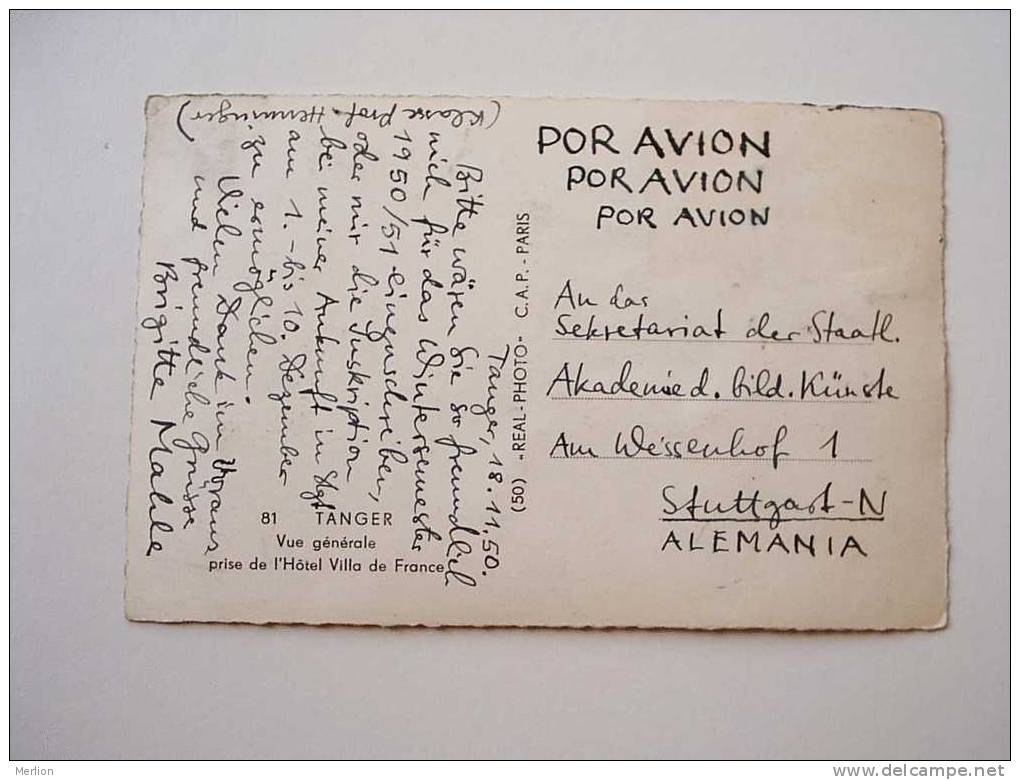 Tanger, 18.11.50.
Bitte wären Sie so freundlich
mich für das Wintersemester
1950/51 einzuschreiben,
oder mir die Inskription
bei meiner Ankunft in Stgt
am 1.-bis 10. Dezember
zu ermöglichen.
Vielen Dank im Voraus
und freundliche Grüsse
Brigitte Mahle
(Klasse Prof. Henninger)
81 TANGER
Vue générale
prise de l'Hôtel Villa de France
(50) "REAL-PHOTO" C.A.P. - PARIS
POR AVION
POR AVION
POR AVION
An das
Sekretariat der Staatl.
Akademie d. bild. Künste
Am Weissenhof 1
Stuttgart-N
ALEMANIA
Merlion
www.delcampe.net